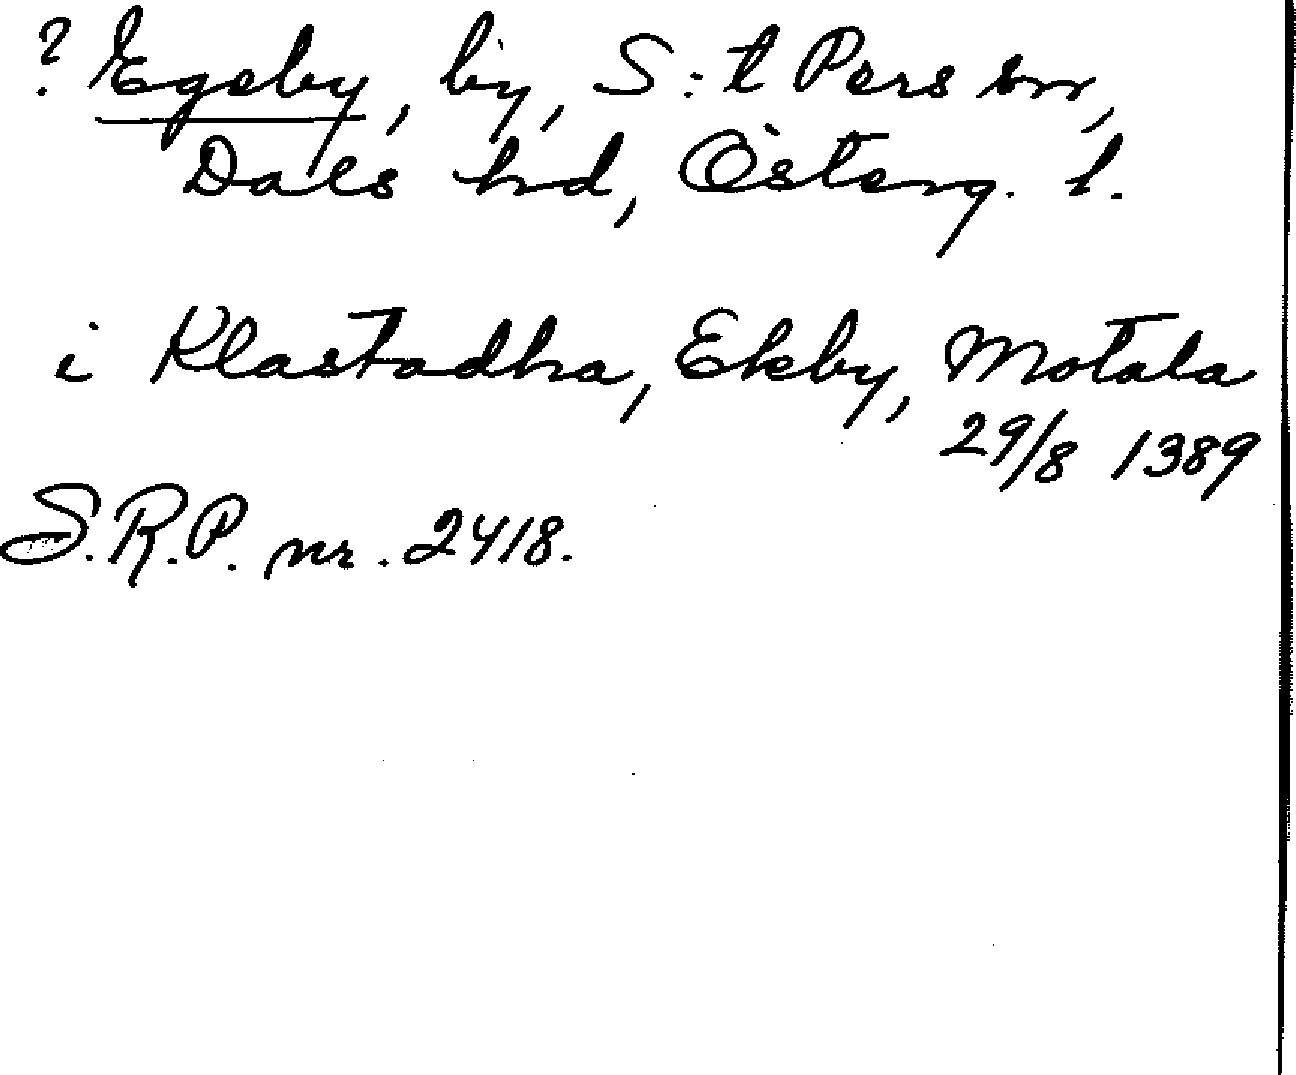 ? Egeby, by, S:t Pers sn,
Dals hd, Österg. l.
i Klastadha, Ekby, Motala
29/8 1389
S.R.P. nr. 2418.